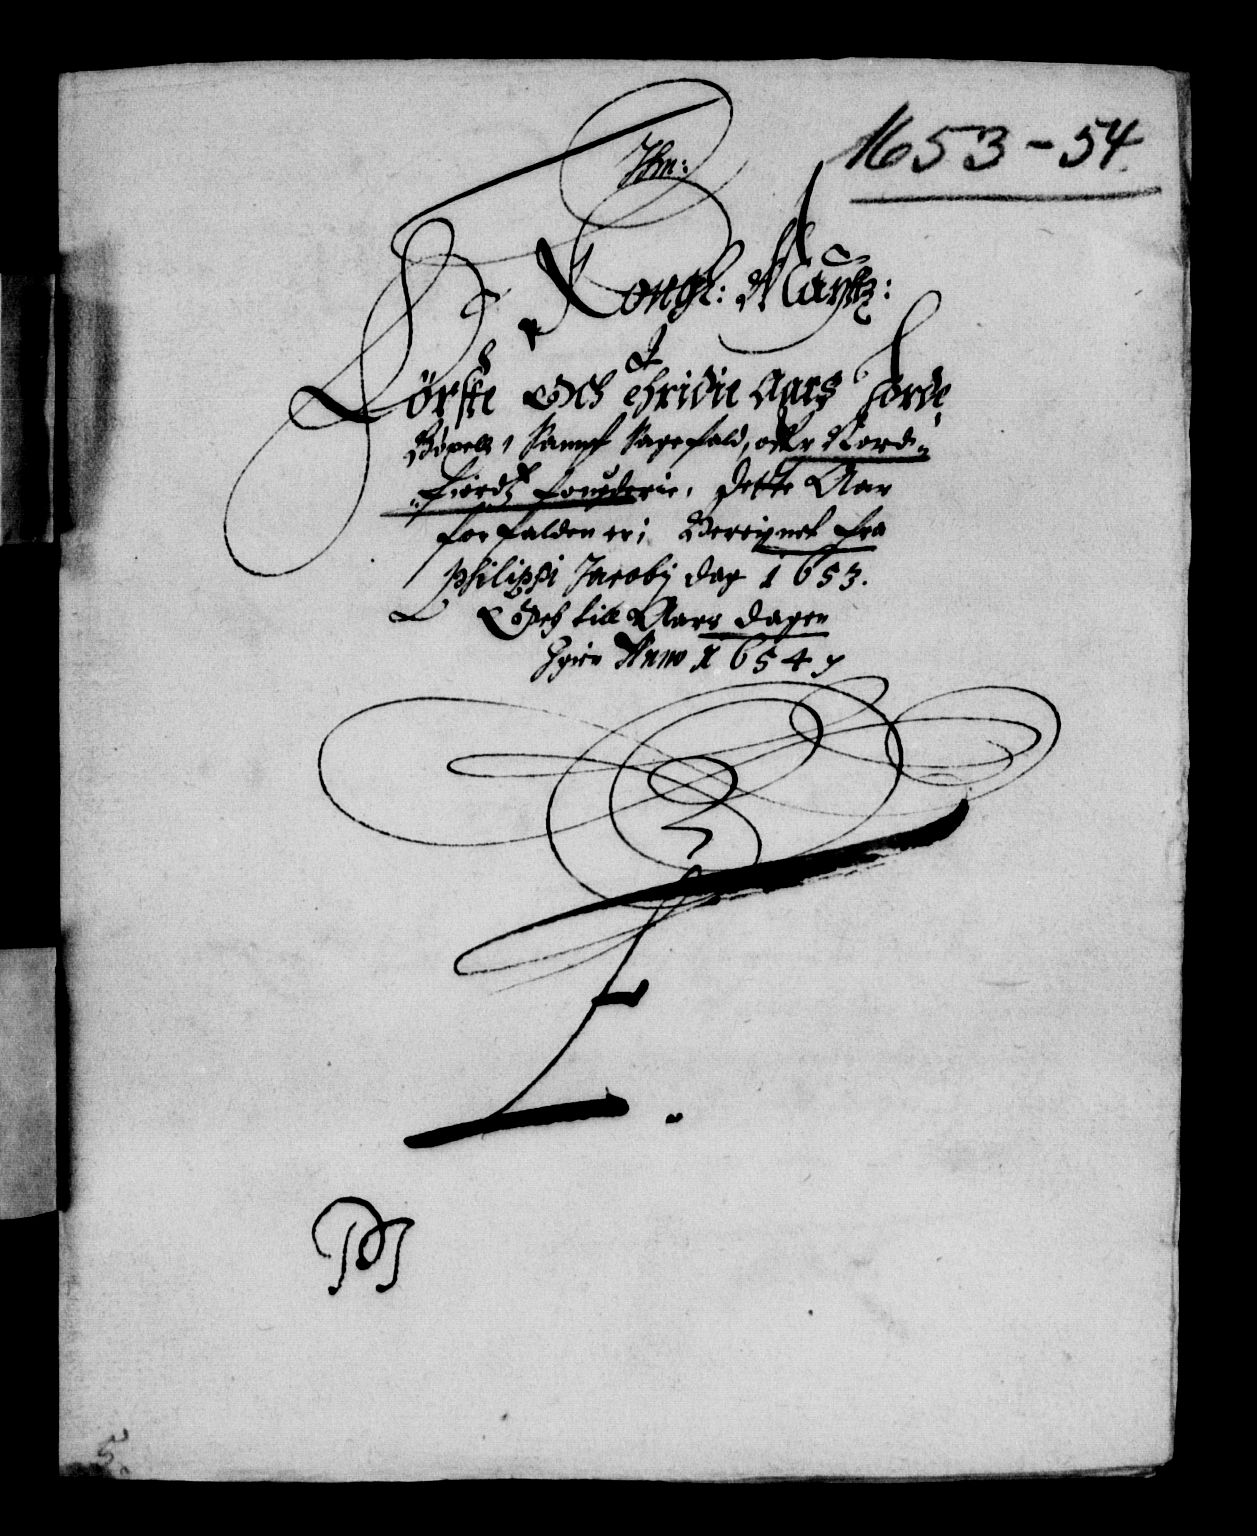 1653-54.
Ihm:
Kongl: Mayttz:
Förste Och thridie Aars Jorde
Böxell, Sampt Sagefald, offr Nord„
„fiordtz fougderie, Dette Aar
forfalden er; Bereignet fra
Philippi Jacobj dag 1653.
Och till Aars dagen
Igien Anno 1654
5.